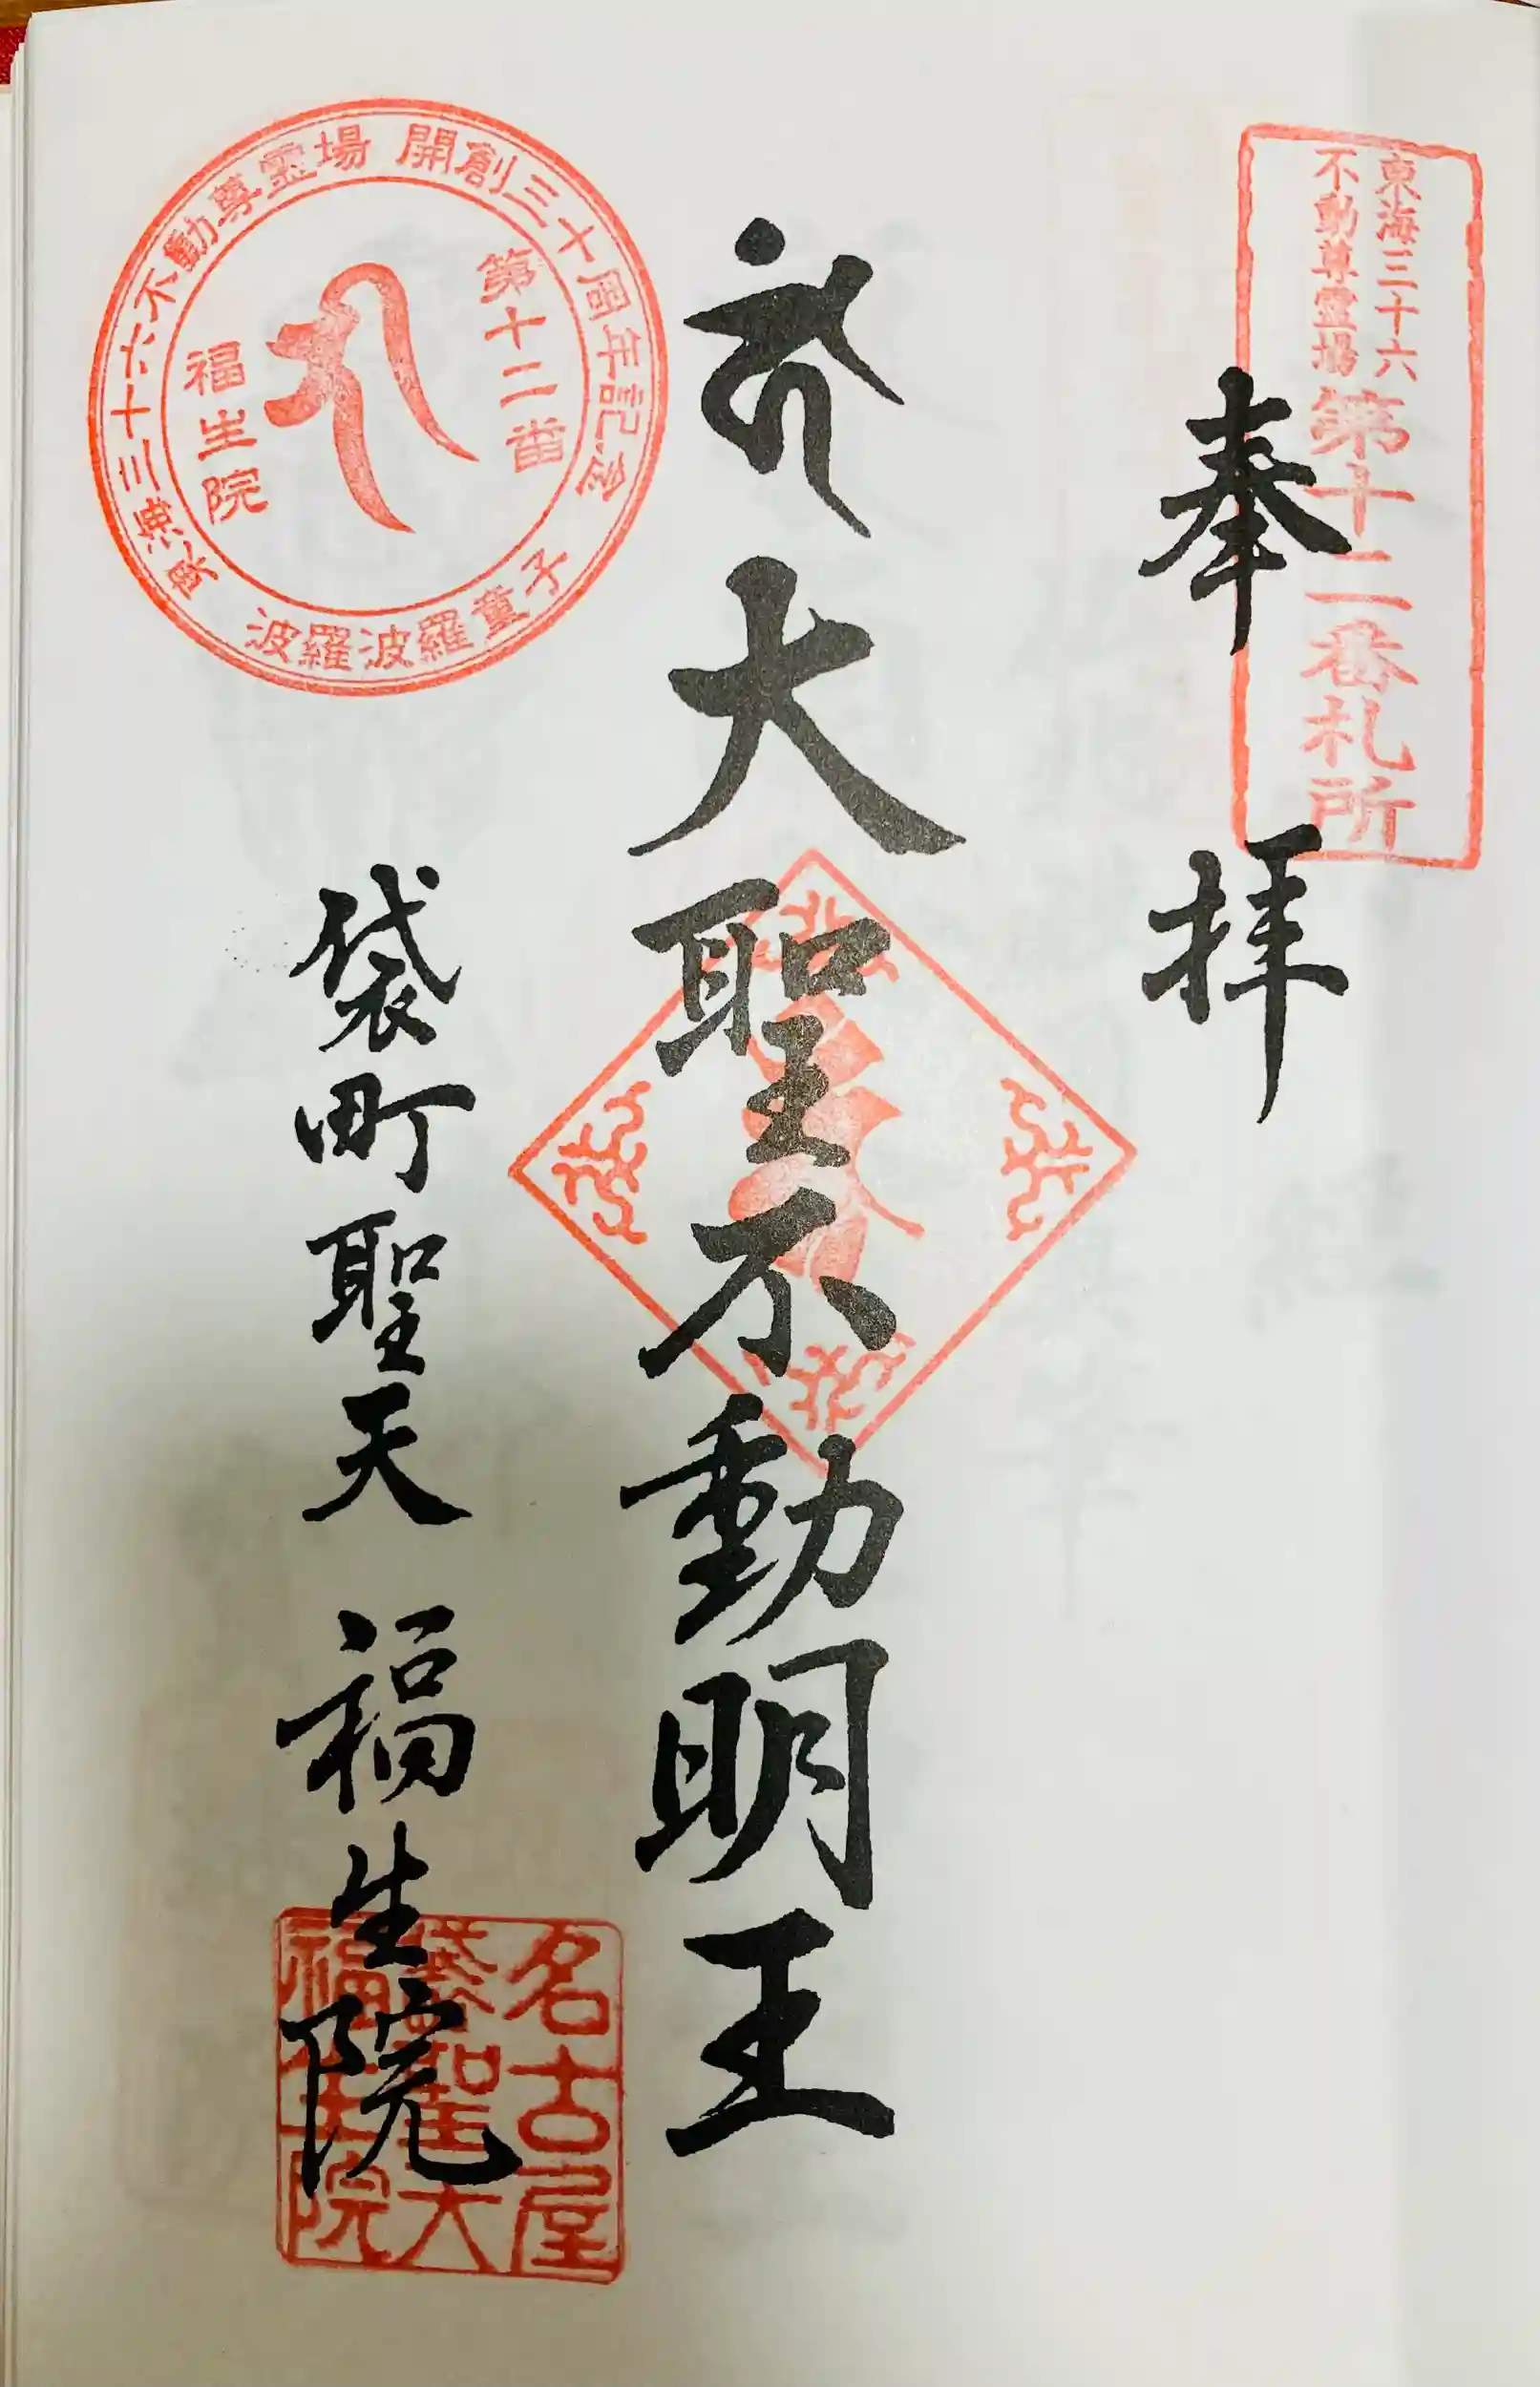 東海三十六
不動尊霊場
第十二番札所
奉拝
大聖不動明王
東海三十六不動尊霊場 開創三十周年記念
第十二番
福生院
波羅波羅童子
袋町聖天 福生院
名古屋
袋聖天
福生院